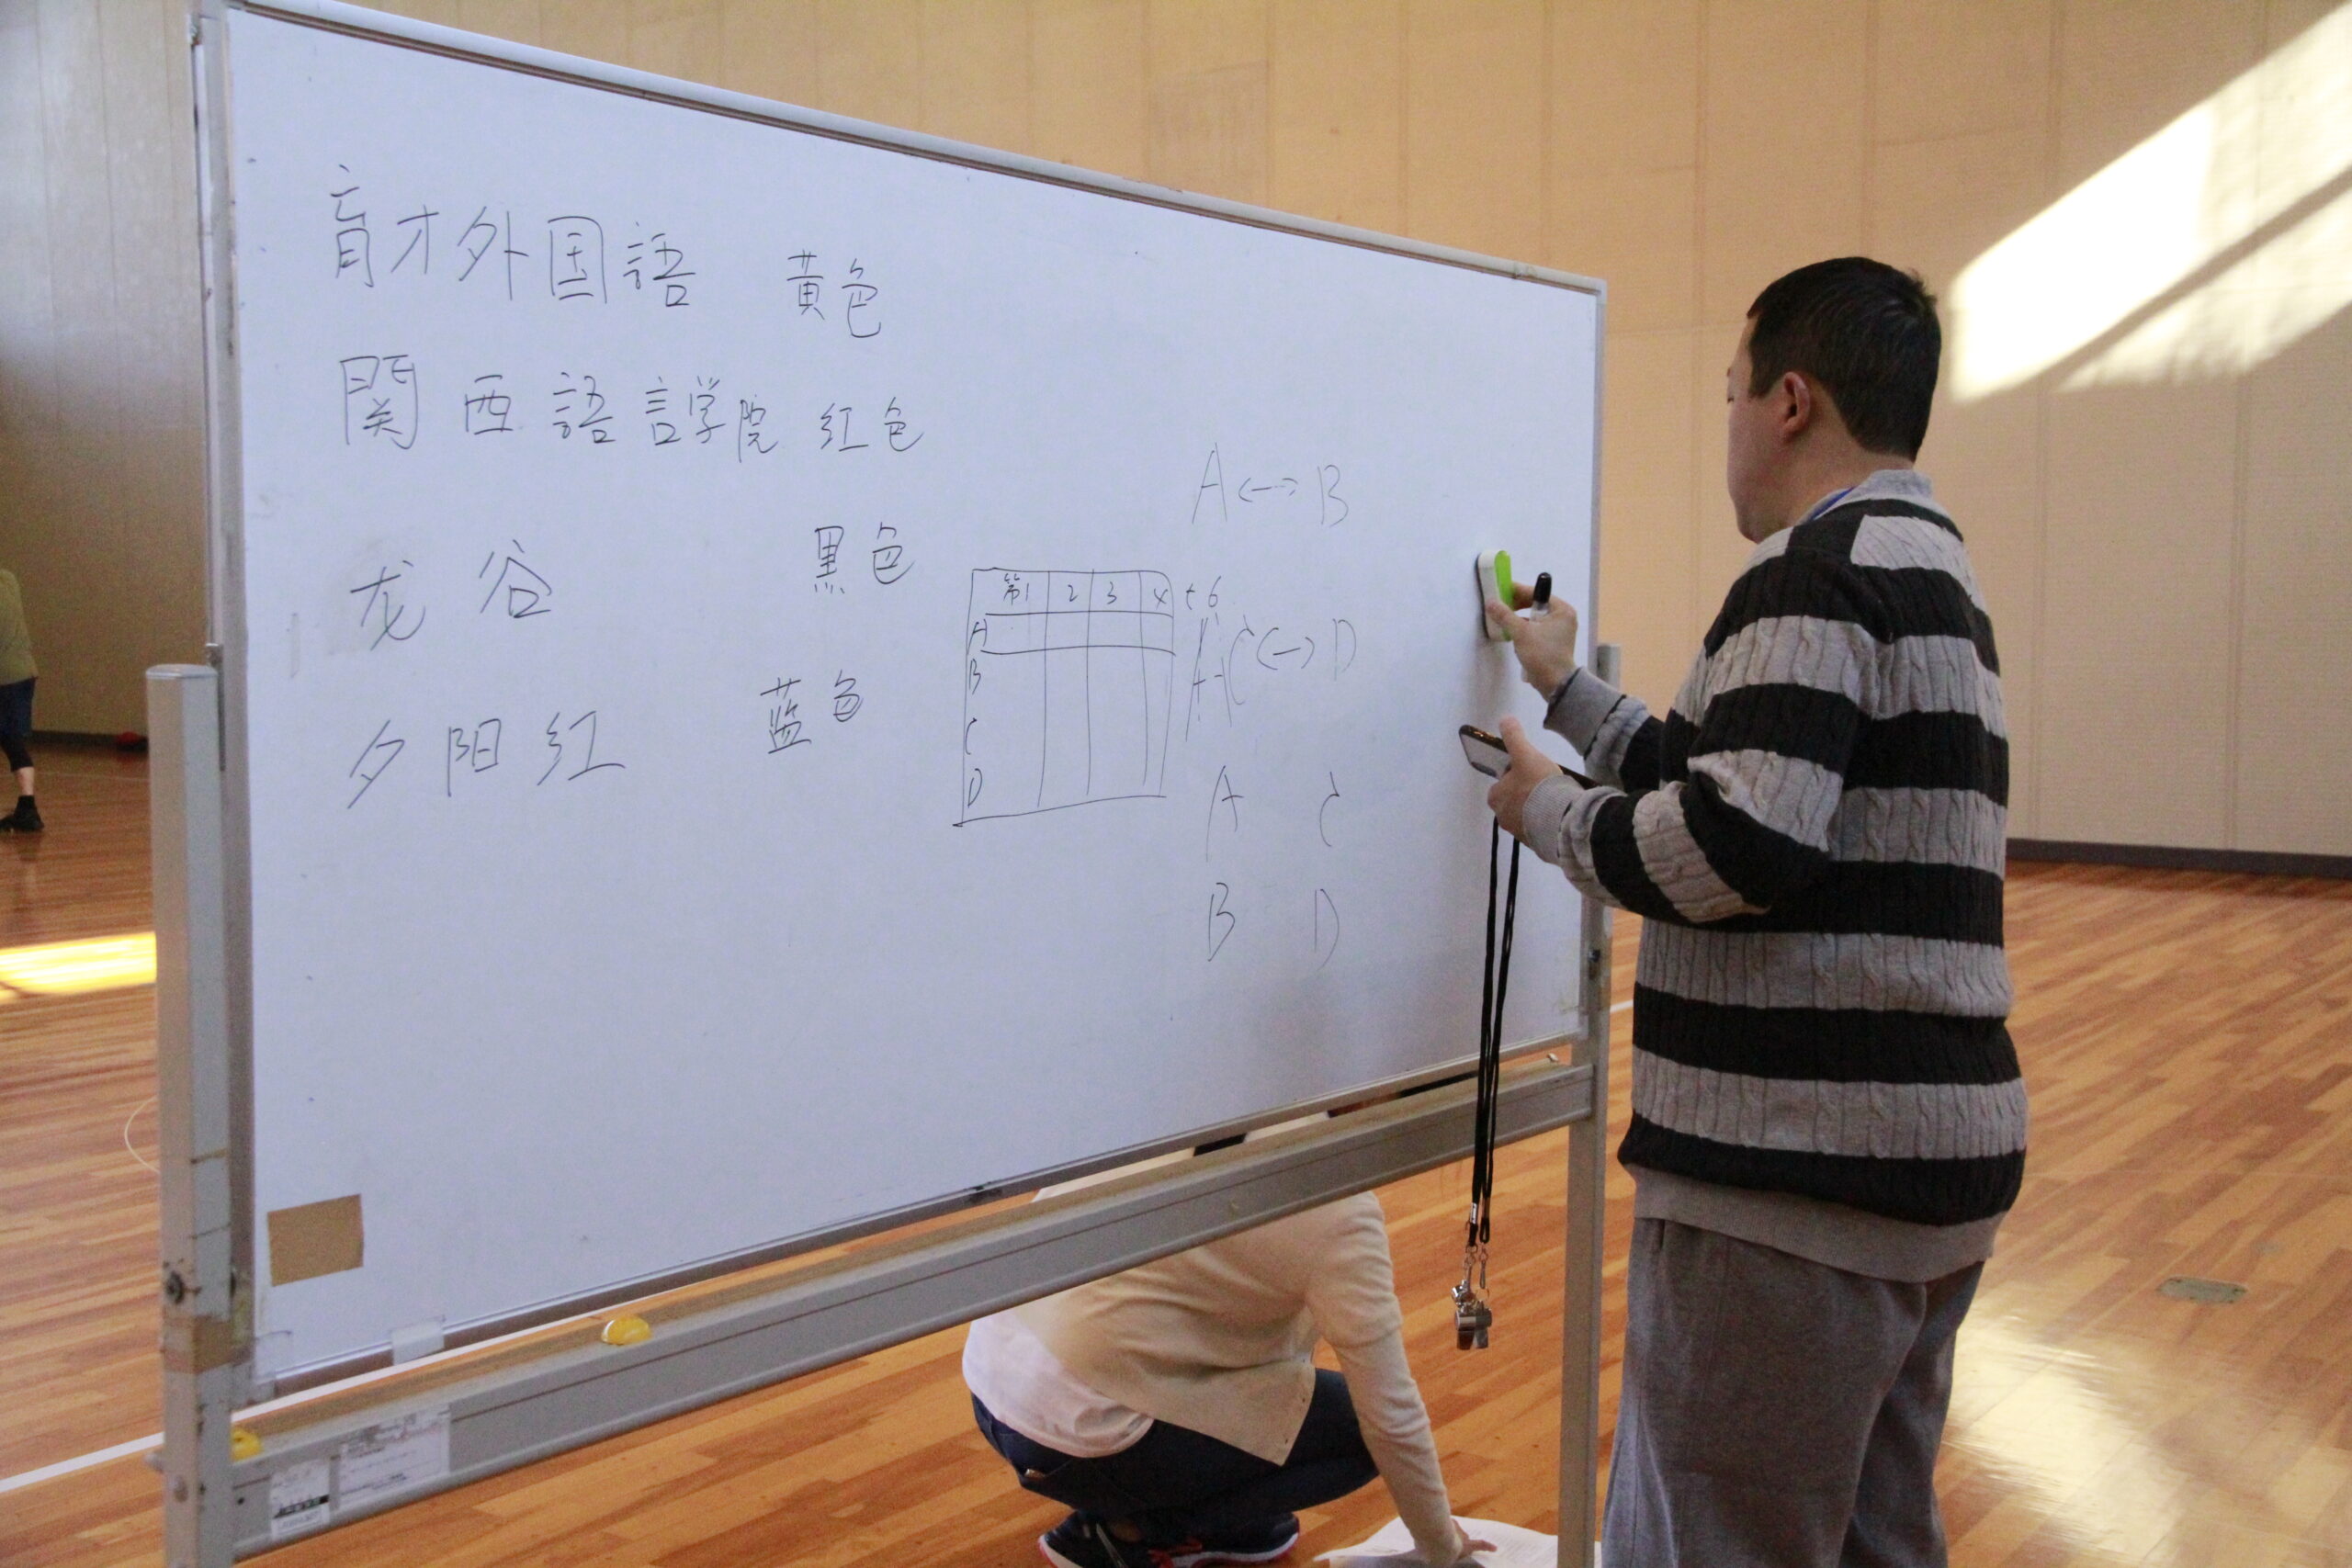 育才外国語 黄色
関西語言学院 红色
龙谷 黑色
夕阳红 蓝色
第1 2 3 4
A
B
C
D
A <--> B
C <-> D
A C
B D